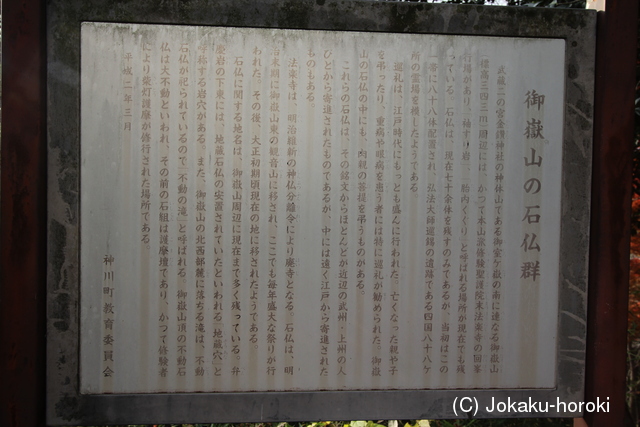 御嶽山の石仏群
武蔵二の宮金鑚神社の神体山である御室ケ嶽の南に連なる御嶽山
(標高三四三m)周辺には、かつて本山派修験聖護院末法楽寺の回峯
行場があり、袖すり岩、胎内くぐりと呼ばれる場所が現在でも残
っている。石仏は、現在七十余体を残すのみであるが、当初はこの
一帯に八十八体配置され、弘法大師巡錫の遺跡である四国八十八ケ
所の霊場を模したようである。
巡礼は、江戸時代にもっとも盛んに行われた。亡くなった親や子
を弔ったり、重病や眼病を患う者には特に巡礼が勧められた。御嶽
山の石仏の中にも、両親の菩提を弔うものがある。
これらの石仏は、その銘文からほとんどが近辺の武州・上州の人
びとから寄進されたものであるが、中には遠く江戸から寄進された
ものもある。
法楽寺は、明治維新の神仏分離令により廃寺となる。石仏は、明
治末期に御嶽山東の観音山に移され、ここでも毎年盛大な祭りが行
われた。その後、大正初期頃現在の地に移されたようである。
石仏に関する地名は、御嶽山周辺に現在まで多く残っている。弁
慶岩の下東には、地蔵石仏の安置されていたといわれる「地蔵穴」と
呼称する岩穴がある。また、御嶽山の北西部麓に落ちる滝は、不動
石仏が祀られているので「不動の滝」と呼ばれる。御嶽山頂の不動石
仏は大不動といわれ、その前の石組は護摩壇であり、かつて修験者
により柴灯護摩が修行された場所である。
平成二年三月
神川町教育委員会
(C) Jokaku-horoki